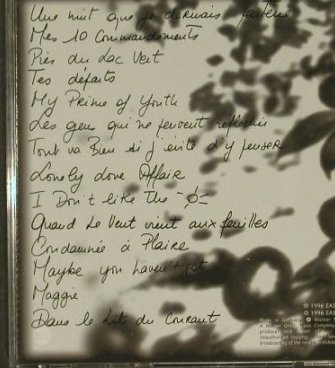 Une nuit que je dormais
Mes 10 Commandements
Près du Lac Vert
Tes défauts
My Prime of Youth
Les gens qui ne peuvent réfléchir
Tout va Bien si j'évite d'y penser
Lonely Love Affair
I Don't like the
Quand Le Vent vient aux feuilles
Condamnée à Plaire
Maybe you haven't yet
Maggie
Dans le Lit du Courant
℗ 1996 EAS
© 1996 EAS